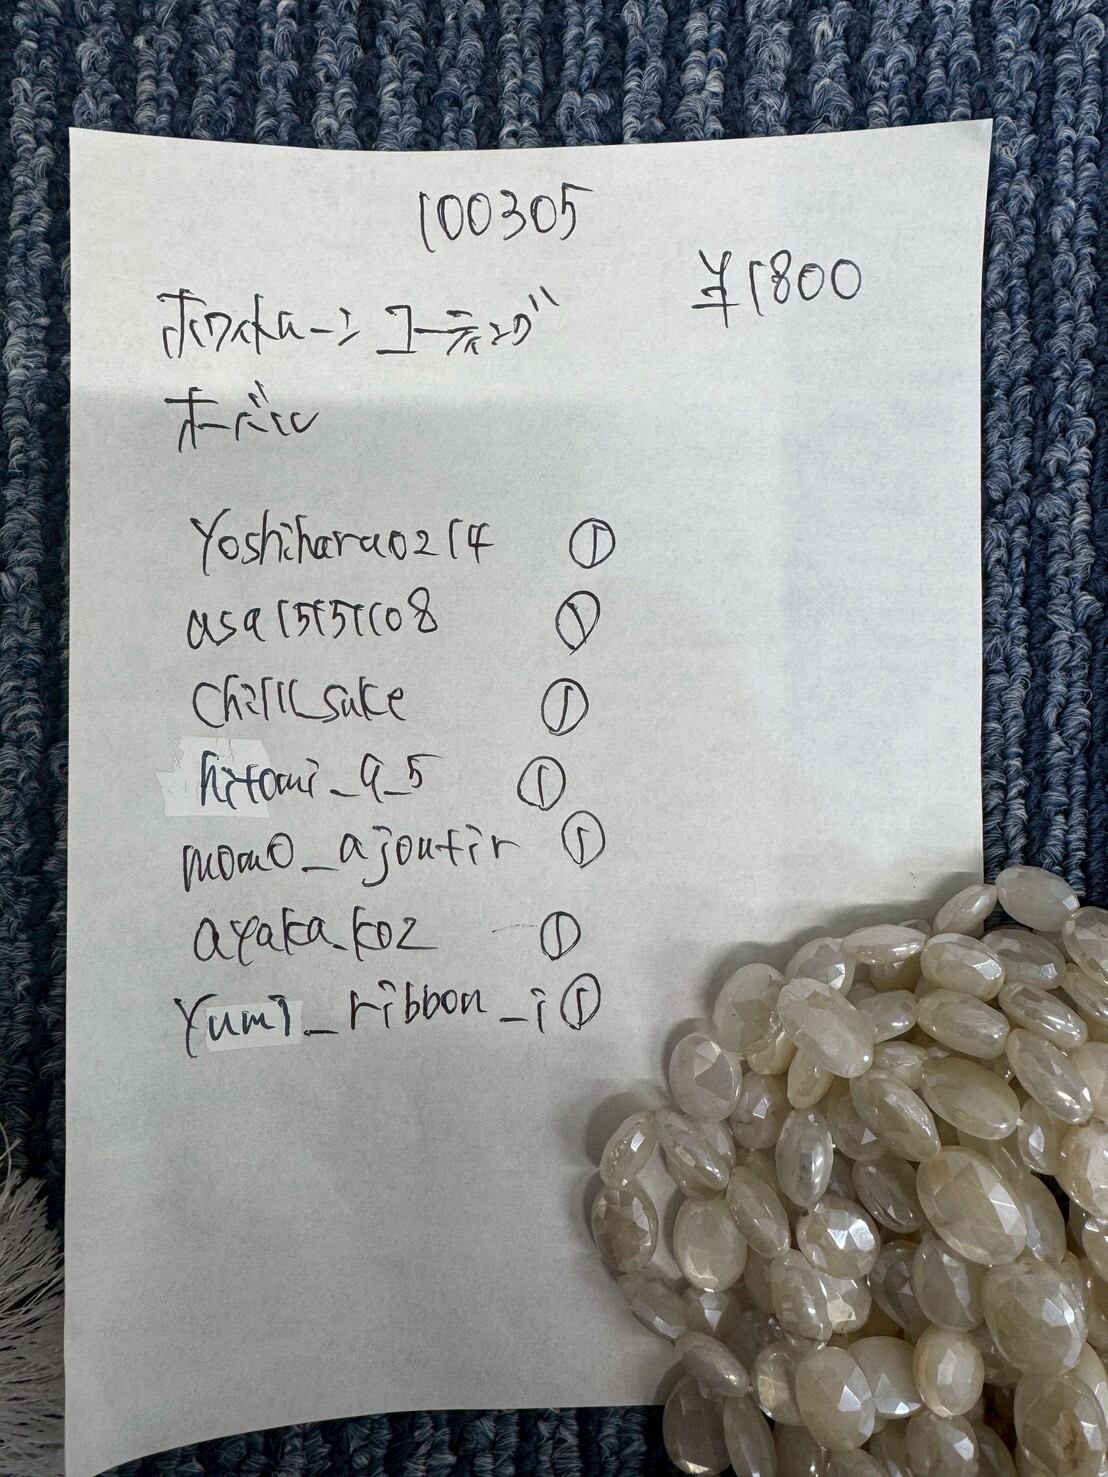 100305
¥1800
ホワイトムーン コーティング
オーバル
Yoshiharu0214 ①
asa15151108 ①
chill_sake ①
hitomi_9_5 ①
momo_ajoutir ①
ayaka_k02 ①
Yumi_ribbon_i ①